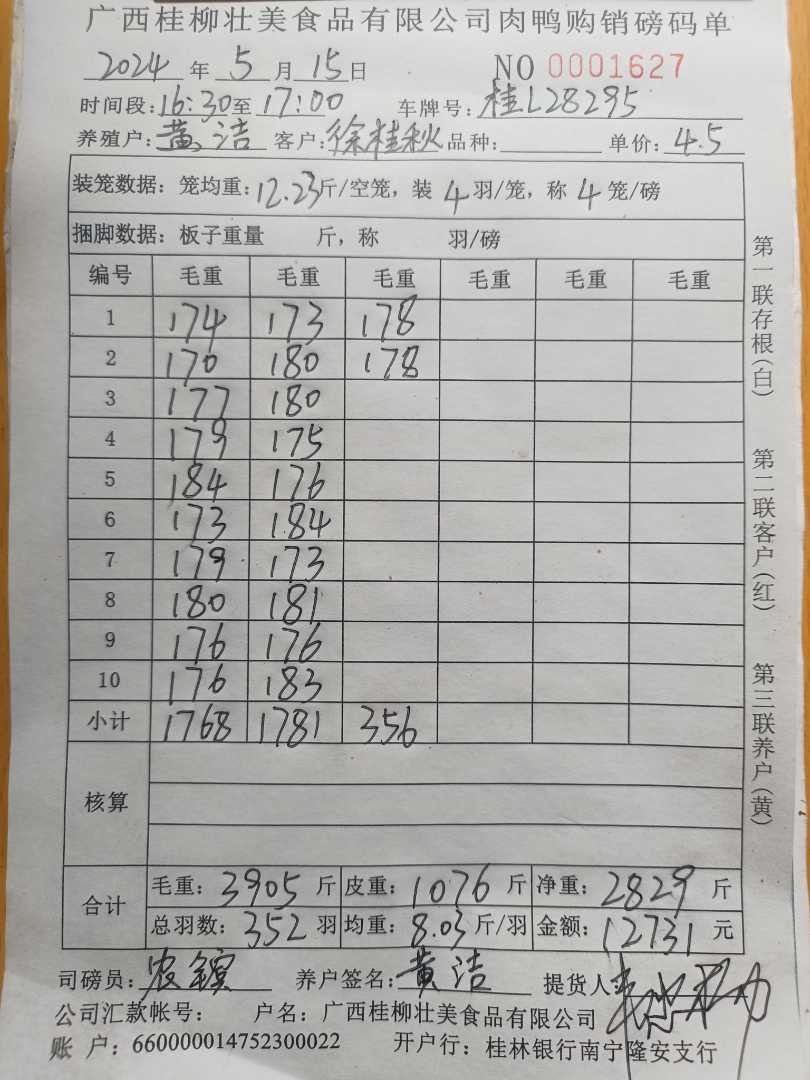 广西桂柳壮美食品有限公司肉鸭购销磅码单
2024 年 5 月 15 日 NO 0001627
时间段:16:30至17:00 车牌号:桂L28295
养殖户:黄洁 客户:徐桂秋 品种: 单价:4.5
装笼数据:笼均重:12.23斤/空笼,装 4 羽/笼,称 4 笼/磅
捆脚数据:板子重量 斤,称 羽/磅
编号 毛重 毛重 毛重 毛重 毛重 毛重
1 174 173 178
2 170 180 178
3 177 180
4 179 175
5 184 176
6 173 184
7 179 173
8 180 181
9 176 176
10 176 183
小计 1768 1781 356
核算
合计
毛重:3905 斤 皮重:1076 斤 净重:2829 斤
总羽数:352 羽 均重:8.03 斤/羽 金额:12731 元
司磅员:农 养户签名:黄洁 提货人:
公司汇款帐号: 户名:广西桂柳壮美食品有限公司
账 户:660000014752300022 开户行:桂林银行南宁隆安支行
第一联存根(白)
第二联客户(红)
第三联养户(黄)